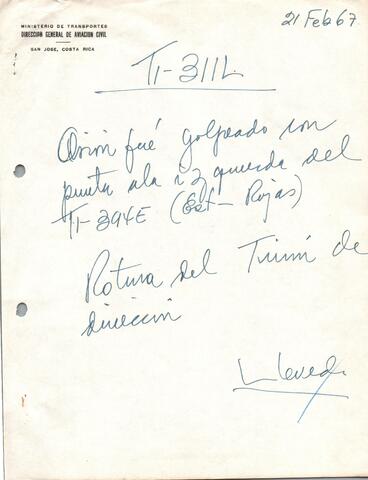 MINISTERIO DE TRANSPORTES
DIRECCION GENERAL DE AVIACION CIVIL
SAN JOSE, COSTA RICA
21 Feb 67
TI-311L
Avión fué golpeado con
punta ala izquierda del
TI-394E (Est- Rojas)
Rotura del Trim de
dirección